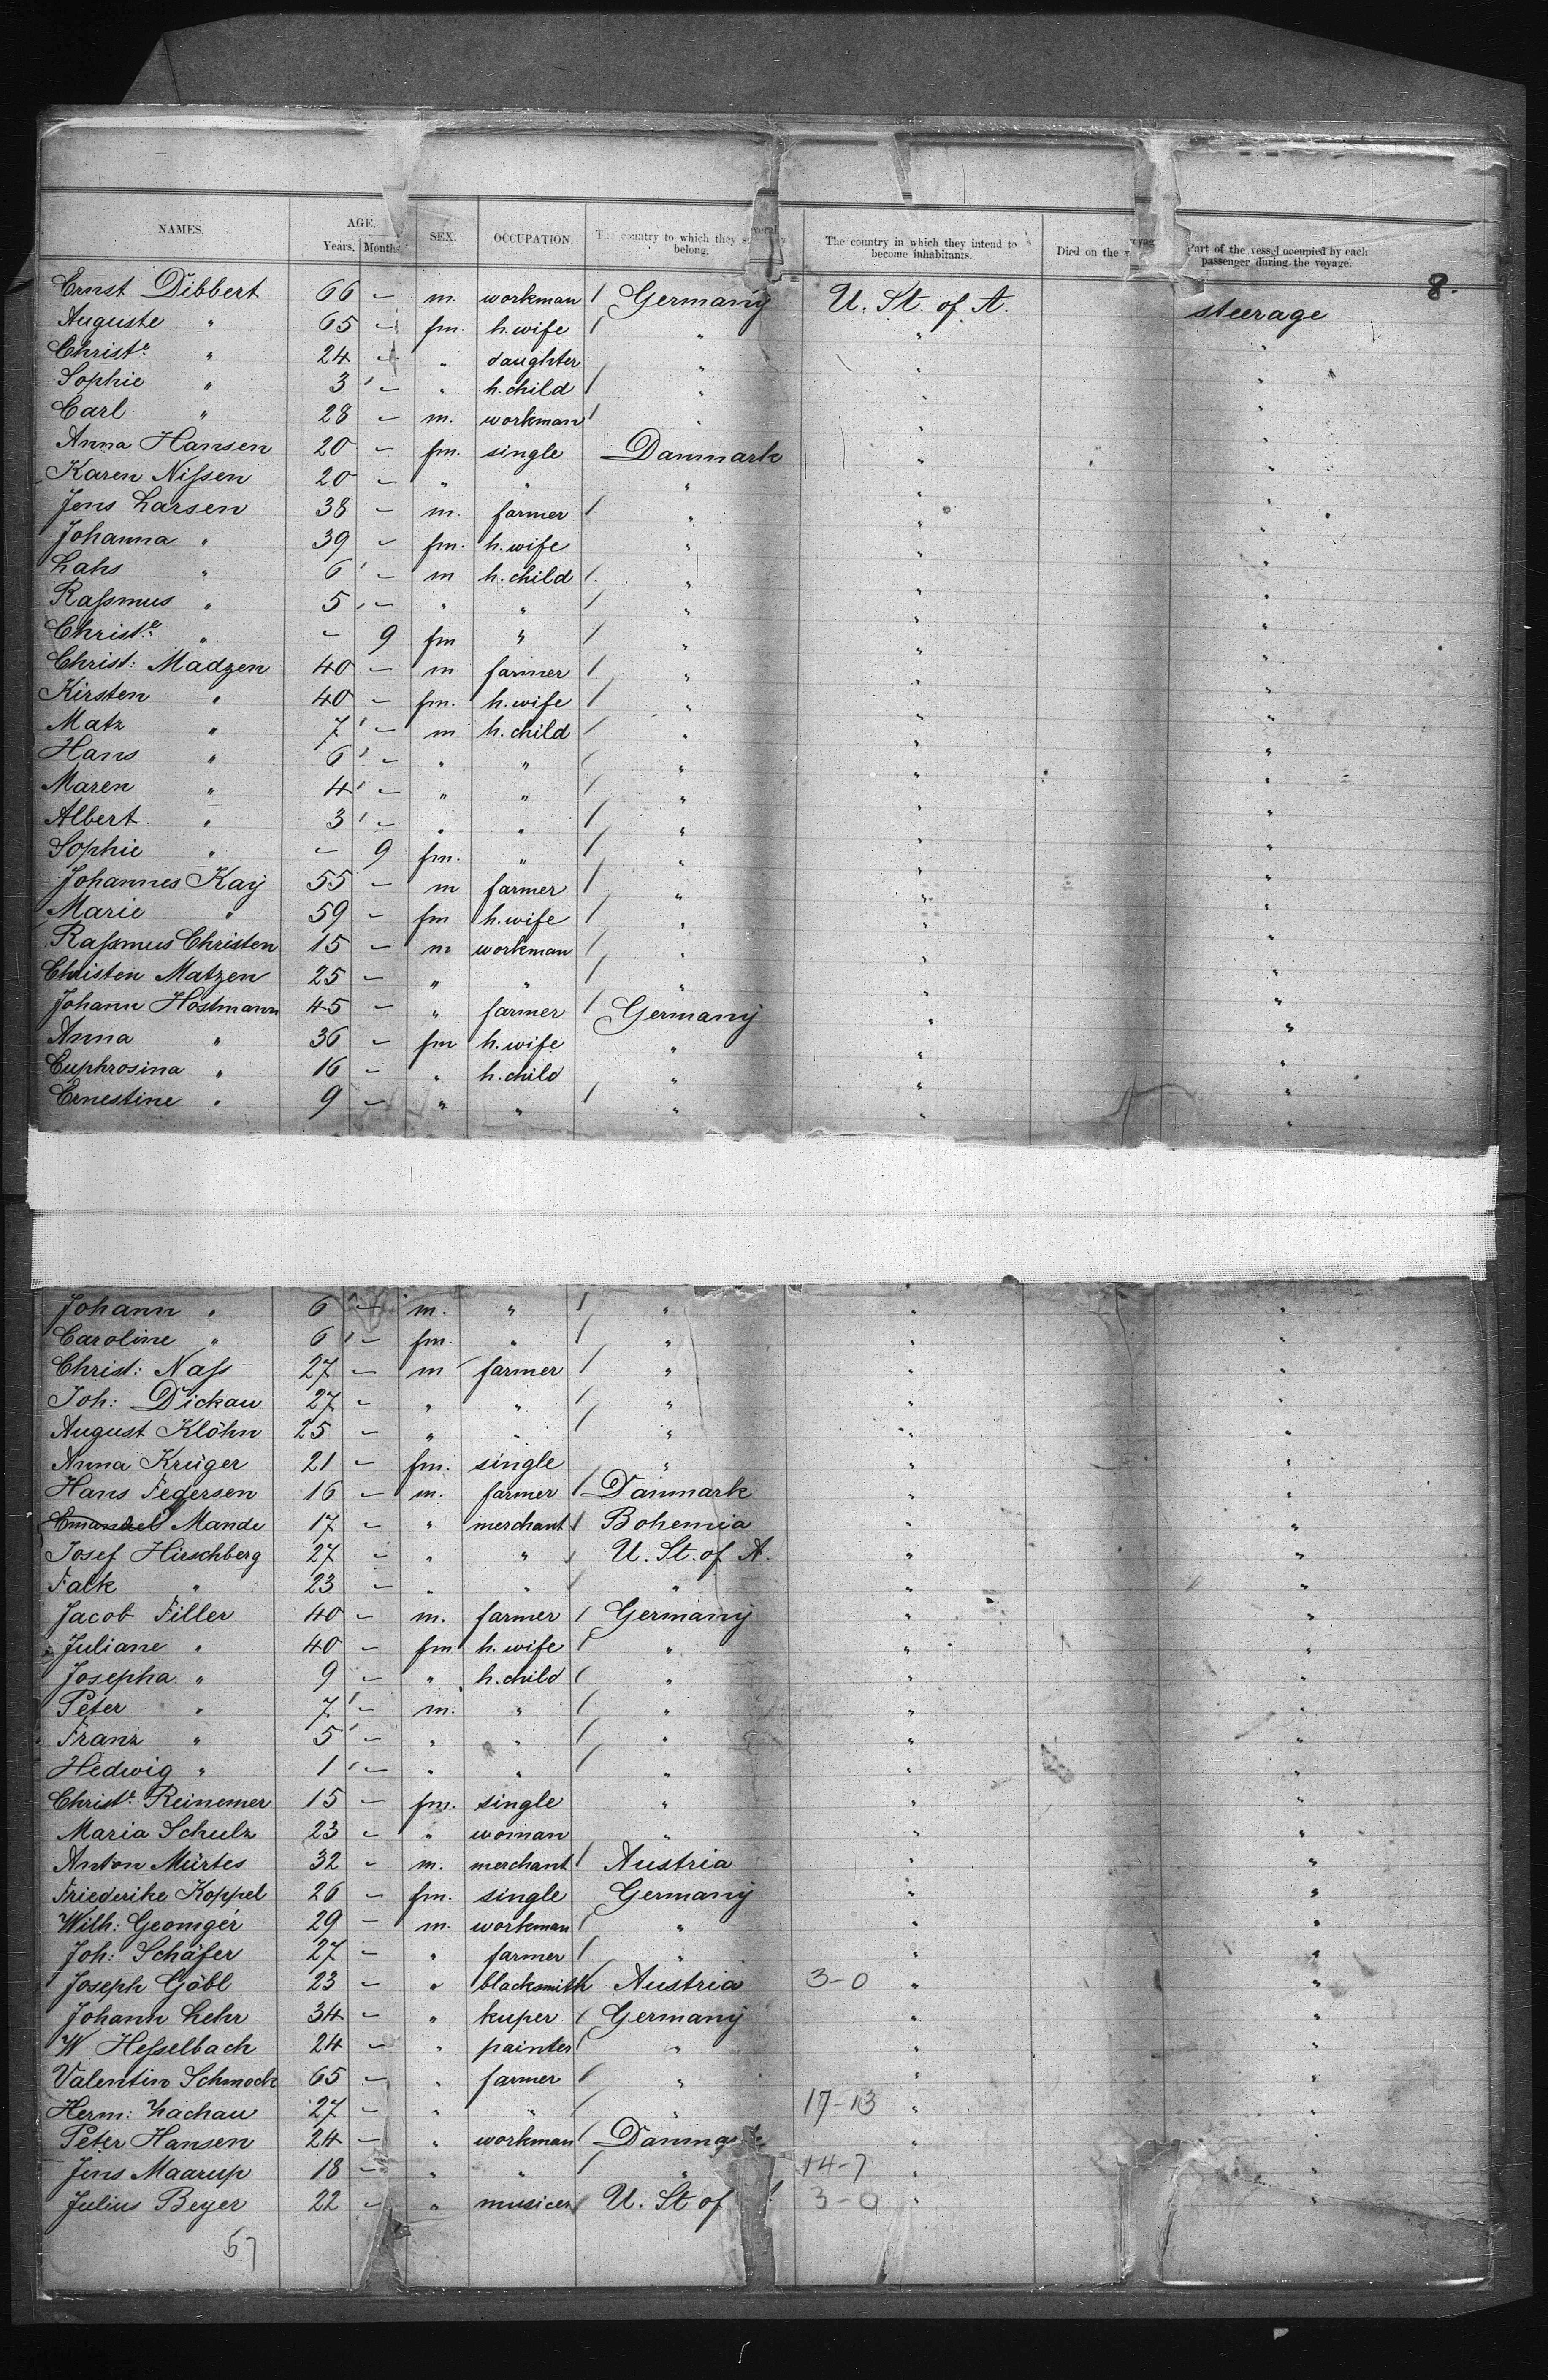 NAMES. AGE. Years. Months. SEX. OCCUPATION. The country to which they severally belong. The country in which they intend to become inhabitants. Died on the voyage Part of the vessel occupied by each passenger during the voyage.
8.
Ernst Dibbert 66 - m. workman / Germany U. St. of A. steerage
Auguste " 65 - fm. h. wife / " " "
Christe. " 24 - " daughter " " "
Sophie " 3 - " h. child / " " "
Carl " 28 - m. workman / " " "
Anna Hansen 20 - fm. single Danmark " "
Karen Nissen 20 - " " " " "
Jens Larsen 38 - m. farmer / " " "
Johanna " 39 - fm. h. wife " " "
Lahs " 6 - m h. child / " " "
Rassmus " 5 - " " / " " "
Christe. " - 9 fm " / " " "
Christ: Madzen 40 - m farmer / " " "
Kirsten " 40 - fm. h. wife / " " "
Matz " 7 - m h. child / " " "
Hans " 6 - " " / " " "
Maren " 4 - " " / " " "
Albert " 3 - " " / " " "
Sophie " - 9 fm. " / " " "
Johannes Kay 55 - m farmer / " " "
Marie " 59 - fm h. wife / " " "
Rassmus Christen 15 - m workman / " " "
Christen Matzen 25 - " " / " " "
Johann Hostmann 45 - " farmer / Germany " "
Anna " 36 - fm h. wife " " "
Euphrosina " 16 - " h. child " " "
Ernestine " 9 - " " / " " "
Johann " 6 - m. " / " " "
Caroline " 6 - fm. " / " " "
Christ: Nass 27 - m farmer / " " "
Joh: Dickau 27 - " " / " " "
August Klöhn 25 - " " / " " "
Anna Krüger 21 - fm. single " " "
Hans Federsen 16 - m. farmer / Danmark " "
Emanuel Mande 17 - " merchant / Bohemia " "
Josef Hirschberg 27 - " " / U. St. of A. " "
Falk " 23 - " " / " " "
Jacob Filler 40 - m. farmer / Germany " "
Juliane " 40 - fm h. wife / " " "
Josepha " 9 - " h. child / " " "
Peter " 7 - m. " / " " "
Franz " 5 - " " / " " "
Hedwig " 1 - " " / " " "
Christe. Reinemer 15 - fm. single " " "
Maria Schulz 23 - " woman " " "
Anton Mürtes 32 - m. merchant / Austria " "
Friederike Koppel 26 - fm. single Germany " "
Wilh: 29 - m. workman / " " "
Joh: Schäfer 27 - " farmer / " " "
Joseph Göbl 23 - " blacksmith Austria 3-0 " "
Johann Lehr 34 - " kuper / Germany " "
W Hesselbach 24 - " painter / " " "
Valentin Schmock 65 - " farmer / " " "
Herm: Zachau 27 - " " / " 17-13 " "
Peter Hansen 24 - " workman / Danmark " "
Jens Maarup 18 - " " / " 14-7 " "
Julius Beyer 22 - " musicer / U. St of 3-0 " "
57